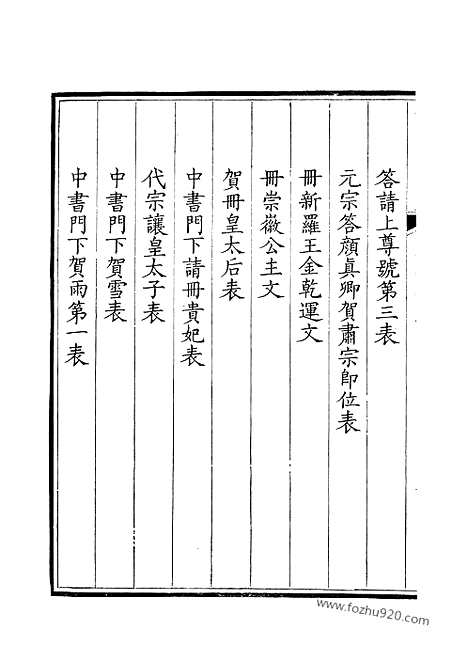 答請上尊號第三表
元宗答顏真卿賀肅宗即位表
冊新羅王金乾運文
冊崇徽公主文
賀冊皇太后表
中書門下請冊貴妃表
代宗讓皇太子表
中書門下賀雪表
中書門下賀雨第一表
www.fozhu920.com